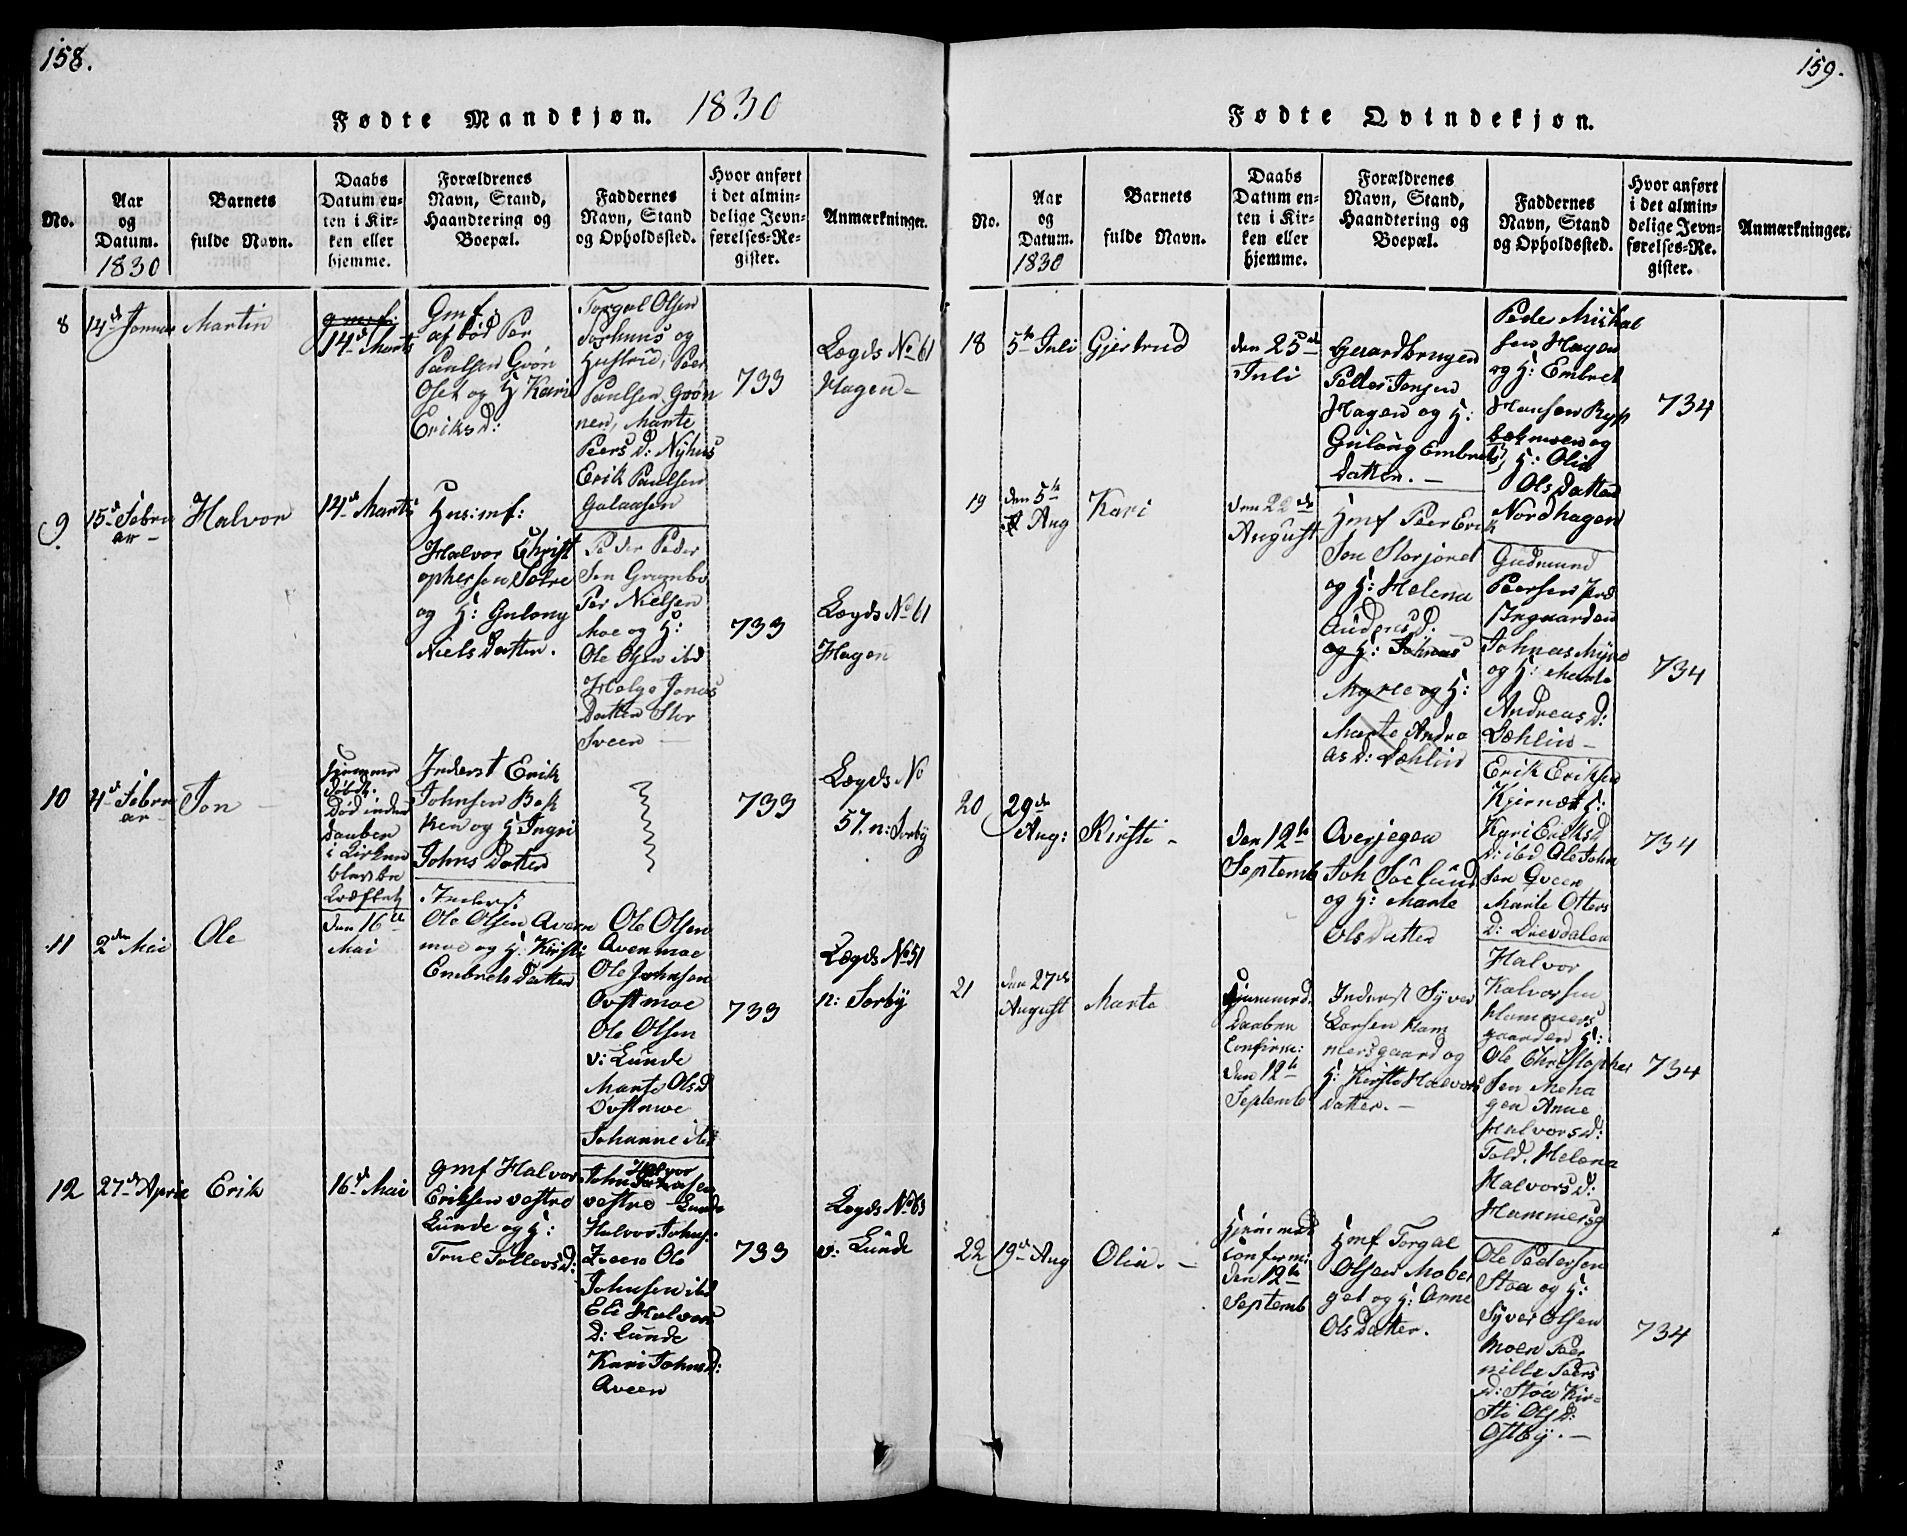 158.
Fødte Mandkjøn. 1830
No.
Aar
og
Datum.
1830
Barnets
fulde Navn.
Daabs
Datum en-
ten i Kir-
ken eller
hjemme.
Forældrenes
Navn, Stand,
Haandtering og
Boepæl.
Faddernes
Navn, Stand
og Opholdssted.
Hvor anført
i det almin-
delige Jevn-
førelses-Re-
gister.
Anmærkninger.
8
14d Januar
Martin
14d Marts
Gmf:
af død Per
Paulsen Grøn
Oset og H Kari
Eriks D:
Torgal Olsen
Hustrue, Peer
Paulsen Grøn
nen, Marte
Peers D: Nyhuus
Erik Paulsen
Galaasen
733
Lægds No 61
Hagen -
9
15d Febru
ar -
Halvor
14d Marts
Huusmf:
Halvor Christ
ophersen Sætre
og H: Gulong
Niels Datter.
Peder Peder
Sen Grambo
Per Nielsen
Moe og H:
Ole Olsen ibd
Helge Jonas
Datter Stor
Sveen
733
Lægds No 61
Hagen
10
4d Febru
ar -
Jon
Hjemme
døbt.
Død inden
Daaben
i Kirken
blev be
kræftet
Inderst Erik
Johnsen Bek
ken og H Ingri
Johns Datter
733
Lægds No
57. n: Sorby
11
2den Mai
Ole
Den 16de
Mai
Inderst.
Ole Olsen Aven
moe og H. Kirsti
Embrets Datter
Ole Olsen
Avenmoe
Ole Johnsen
Øvstmoe
Ole Olsen
v: Lunde
Marte Ols D
Øvstmoe
Johanne ibd
733
Lægds No 51
n: Sorby
12
27d April
Erik
16d Mai
Gmf Halvor
Eriksen vestre
Lunde og H:
Trul Tollevs D:
Halvor
John
vestre Lunde
Halvor Johns:
Ole
Johnsen ibd
Eli Halvors
D: Lunde
Kari Johns D:
Aveen
733
Lægds No 63
v: Lunde
159.
Fødte Qvindekjøn.
No.
Aar
og
Datum.
1830
Barnets
fulde Navn.
Daabs
Datum en-
ten i Kir-
ken eller
hjemme.
Forældrenes
Navn, Stand,
Haandtering og
Boepæl.
Faddernes
Navn, Stand
og Opholdssted.
Hvor anført
i det almin-
delige Jevn-
førelses-Re-
gister.
Anmærkninger.
18
5te Juli
Gjertrud
den 25de
Juli
Gaardbruger
Peder Jonsen
Hagen og H:
Gulong Embrets
Datter. -
Peder Michal
sen Hagen
og H: Embret
Hansen Ryp
bekmoen og
H: Olia
Ols Datter
Nordhagen
734
19
den 5te
Aug
Kari
den 22de
August
Hmf Peer Erik
Sen Storjoret
og H: Helena
Anders D.
og H: Johnas
Myree og H:
Marte Andre
as D: Dæhlin
Gudmund
Peersen
Ingvarden
Johnas Myre
og H: Marte
Andreas D:
Dæhlin -
734
20
29de
Aug:
Kirsti -
den 12te
Septemb
Overjegen
Joh Sölund
og H: Marte
Ols Datter
Erik Eriksen
Kjernæt D:
Kari Eriks D
D: ibd Ole John
sen Qveen
Marte Otters
D: Drevdalen
734
21
den 27de
August
Marte
Hjemmed.
Daaben
Confirm:
den 12te
Septemb
Inderst Syver
Larsen Ham
mersgaard og
H: Kirsti Halvors
datter. -
Halvor
Halvorsen
Hammers
gaarden H:
Ole Christopher
sen Meha
gen Anne
Halvors D:
Told. Helena
Halvors D:
Hammersg
734
22
19de Aug
Olia. -
Hjemmed
Confirm:
den 12te
Septemb
Hmf Torgal
Olsen Mober
get og H: Anne
Ols Datter.
Ole Pedersen
Støa og H:
Syver Olsen
Moen Peer
nille Peers
D: Støa Kir-
sti Ols D:
Østby. -
734